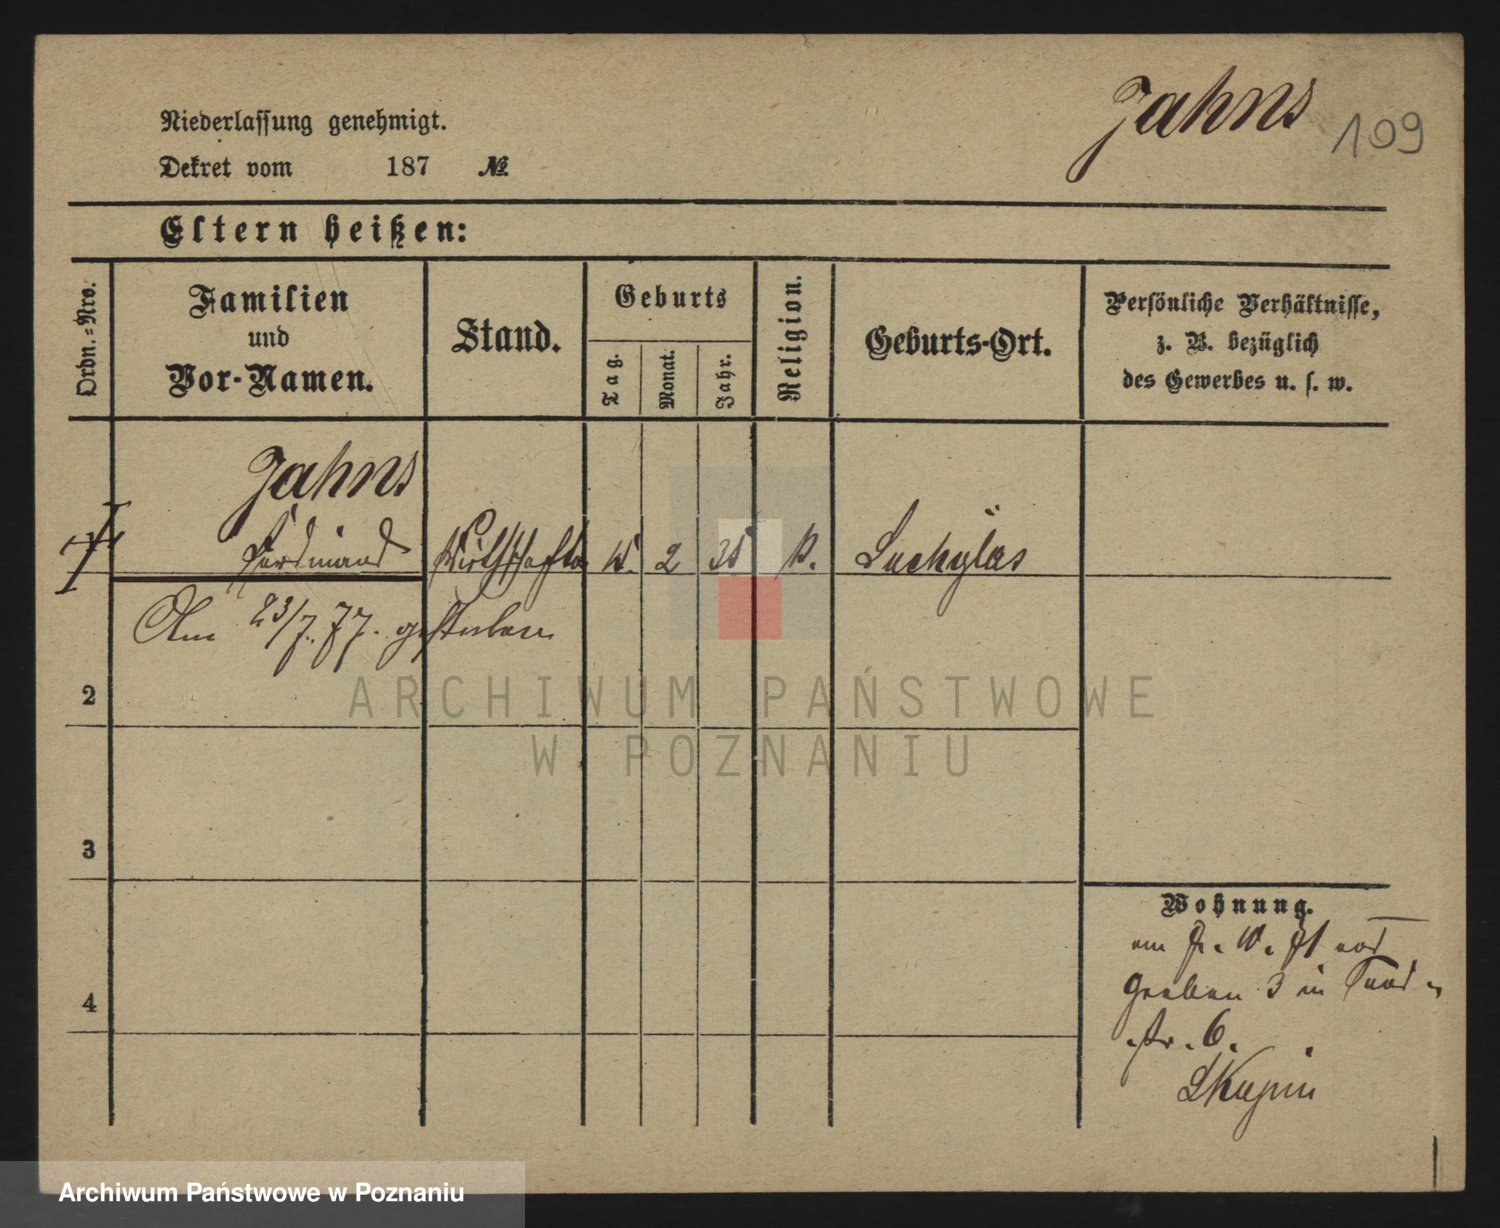 Jahns
109
Niederlassung genehmigt.
Dekret vom 187 №
Eltern heißen:
Ordn.-Nro.
Familien
und
Vor-Namen.
Stand.
Geburts
Tag.
Monat.
Jahr.
Religion.
Geburts-Ort.
Persönliche Verhältnisse,
z. B. bezüglich
des Gewerbes u. s. w.
Jahns
Ferdinand 2 35
Am 23/7. 77. gestorben
2
3
4
Wohnung.
Graben 3 in
str. 6.
ARCHIWUM PAŃSTWOWE
W POZNANIU
Archiwum Państwowe w Poznaniu